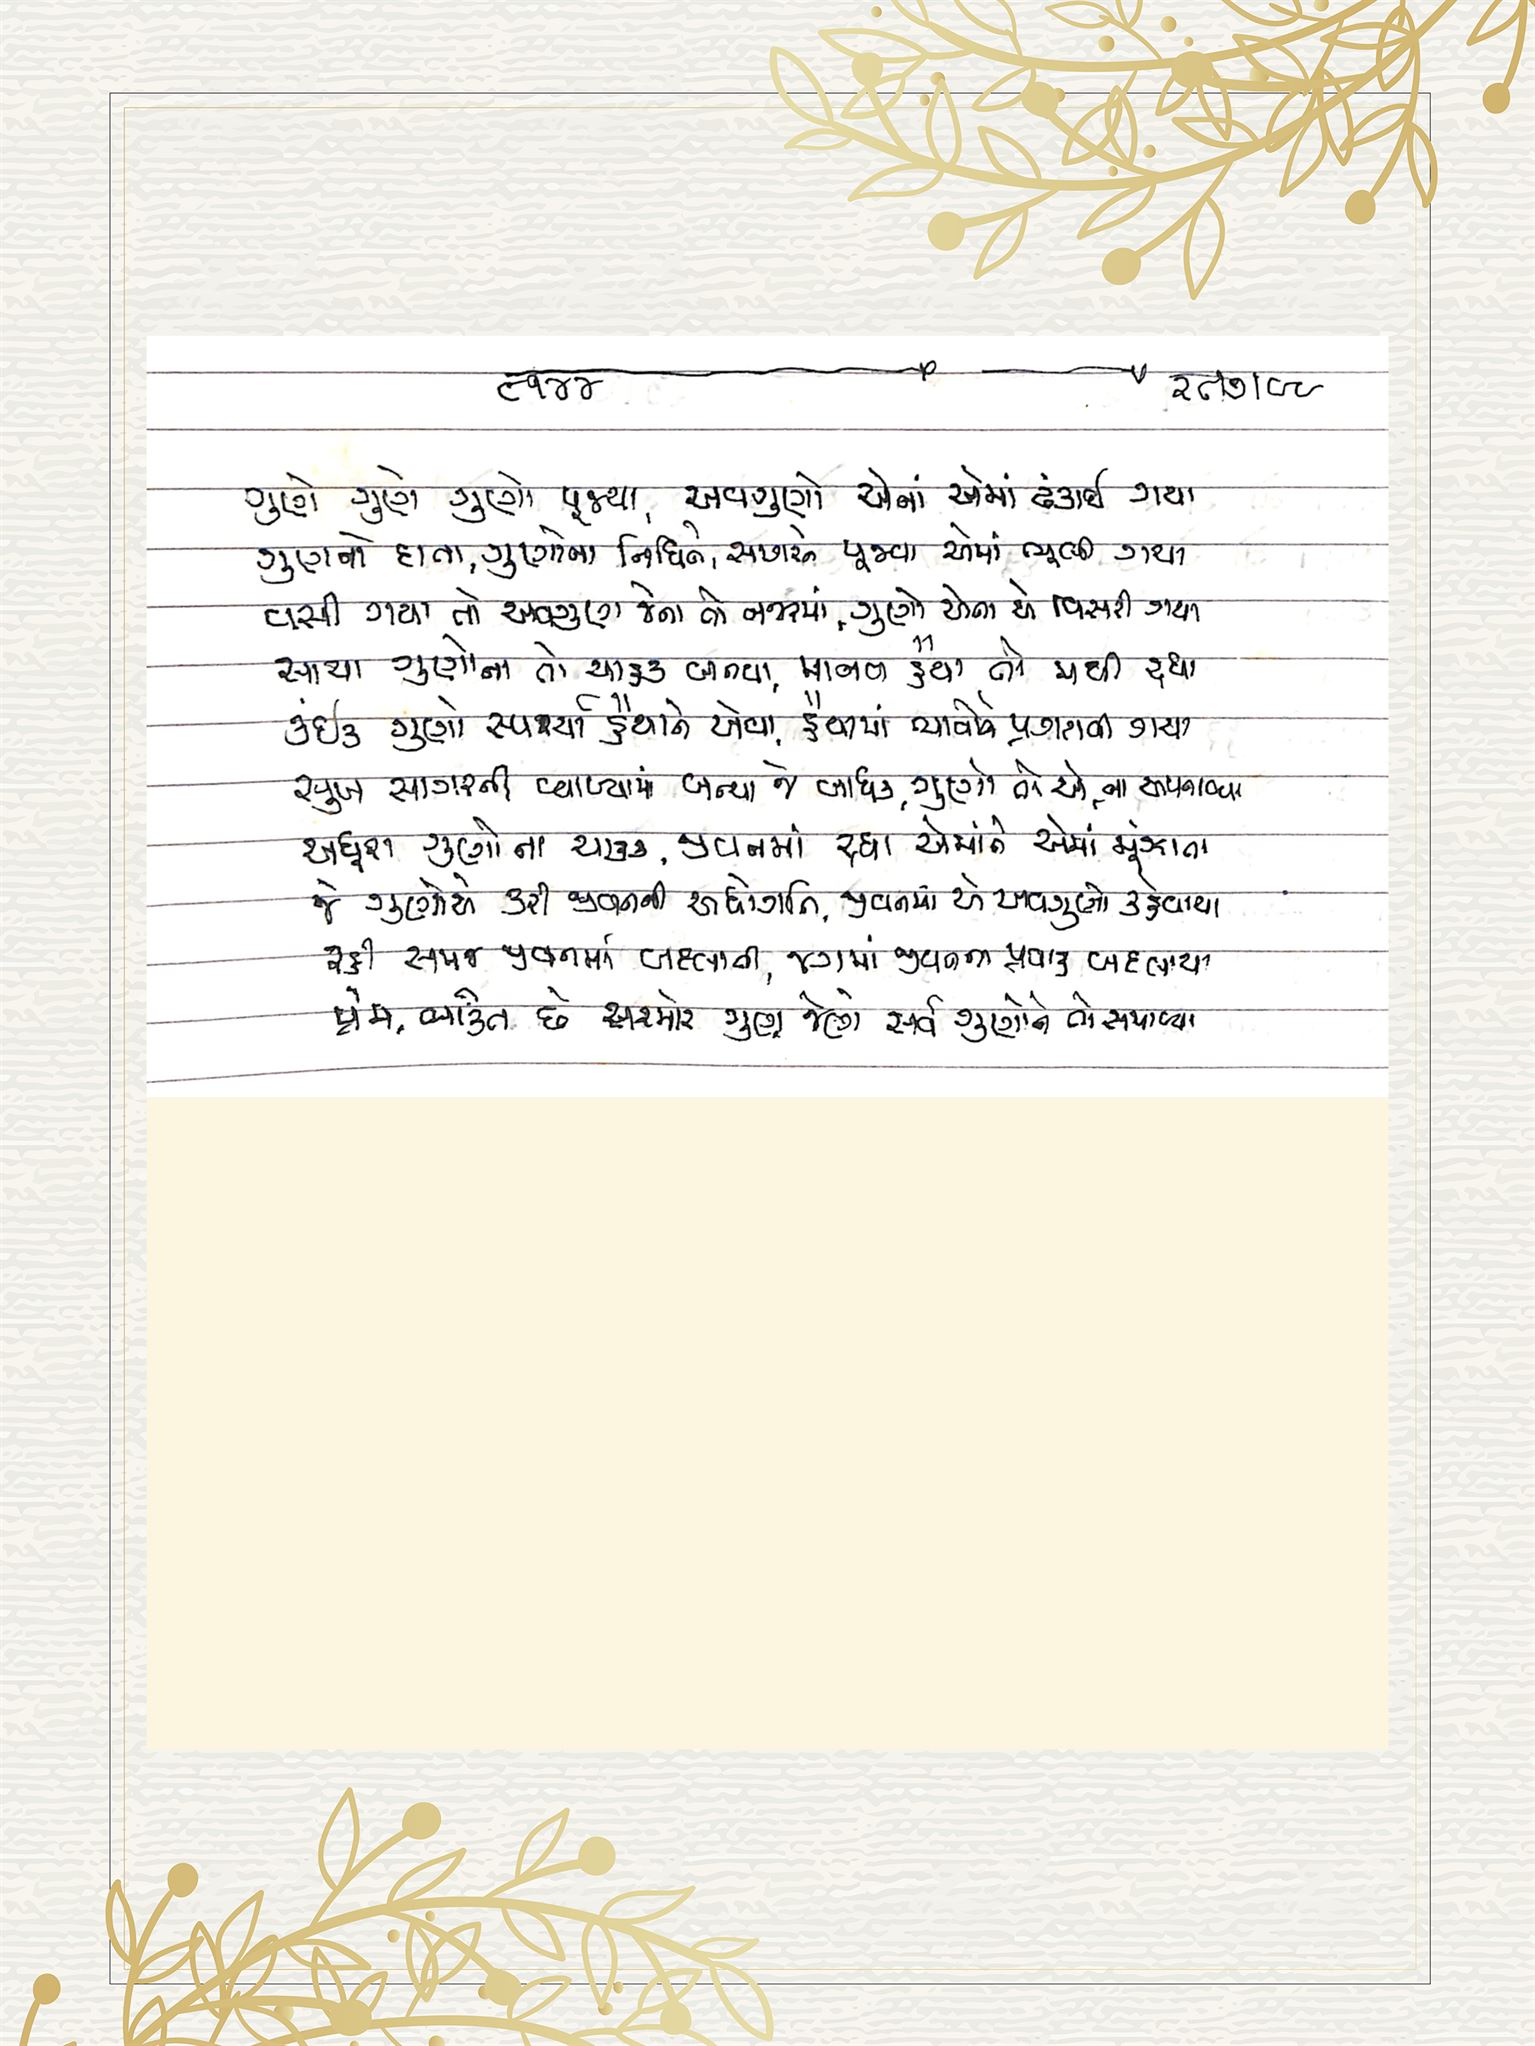 ૯૧૪૪
ગુણે ગુણે ગુણો પૂજ્યા, અવગુણો એનાં એમાં ઢંકાઈ ગયા
ગુણનો દાતા, ગુણોના નિધિને, સહારને પૂજવા એમાં ભૂલી ગયા
વસી ગયા તો અવગુણ જેના તો નજરમાં, ગુણો એના એ વિસરી ગયા
સાચા ગુણોના તો ચાહક બનવા, માનવ હૈયા તો મથી રહ્યા
કંઈક ગુણો સ્પર્શ્યા હૈયાને એવા, હૈયામાં ભાવોને પ્રગટાવી ગયા
સુખ સાગરની વ્યાખ્યામાં બન્યા જે બાધક, ગુણો તો એ ના અપનાવ્યા
અધૂરા ગુણોના ચાહક, જીવનમાં રહ્યા એમાંને એમાં મૂંઝાતા
જે ગુણોએ કરી જીવનની અધોગતિ, જીવનમાં એ અવગુણો કહેવાયા
રહી સમજ જીવનમાં બદલાતી, જગમાં જીવનના પ્રવાહ બદલાયા
પ્રેમ, ભક્તિ છે સરમોર ગુણ જેણે સર્વ ગુણોને તો સમાવ્યા